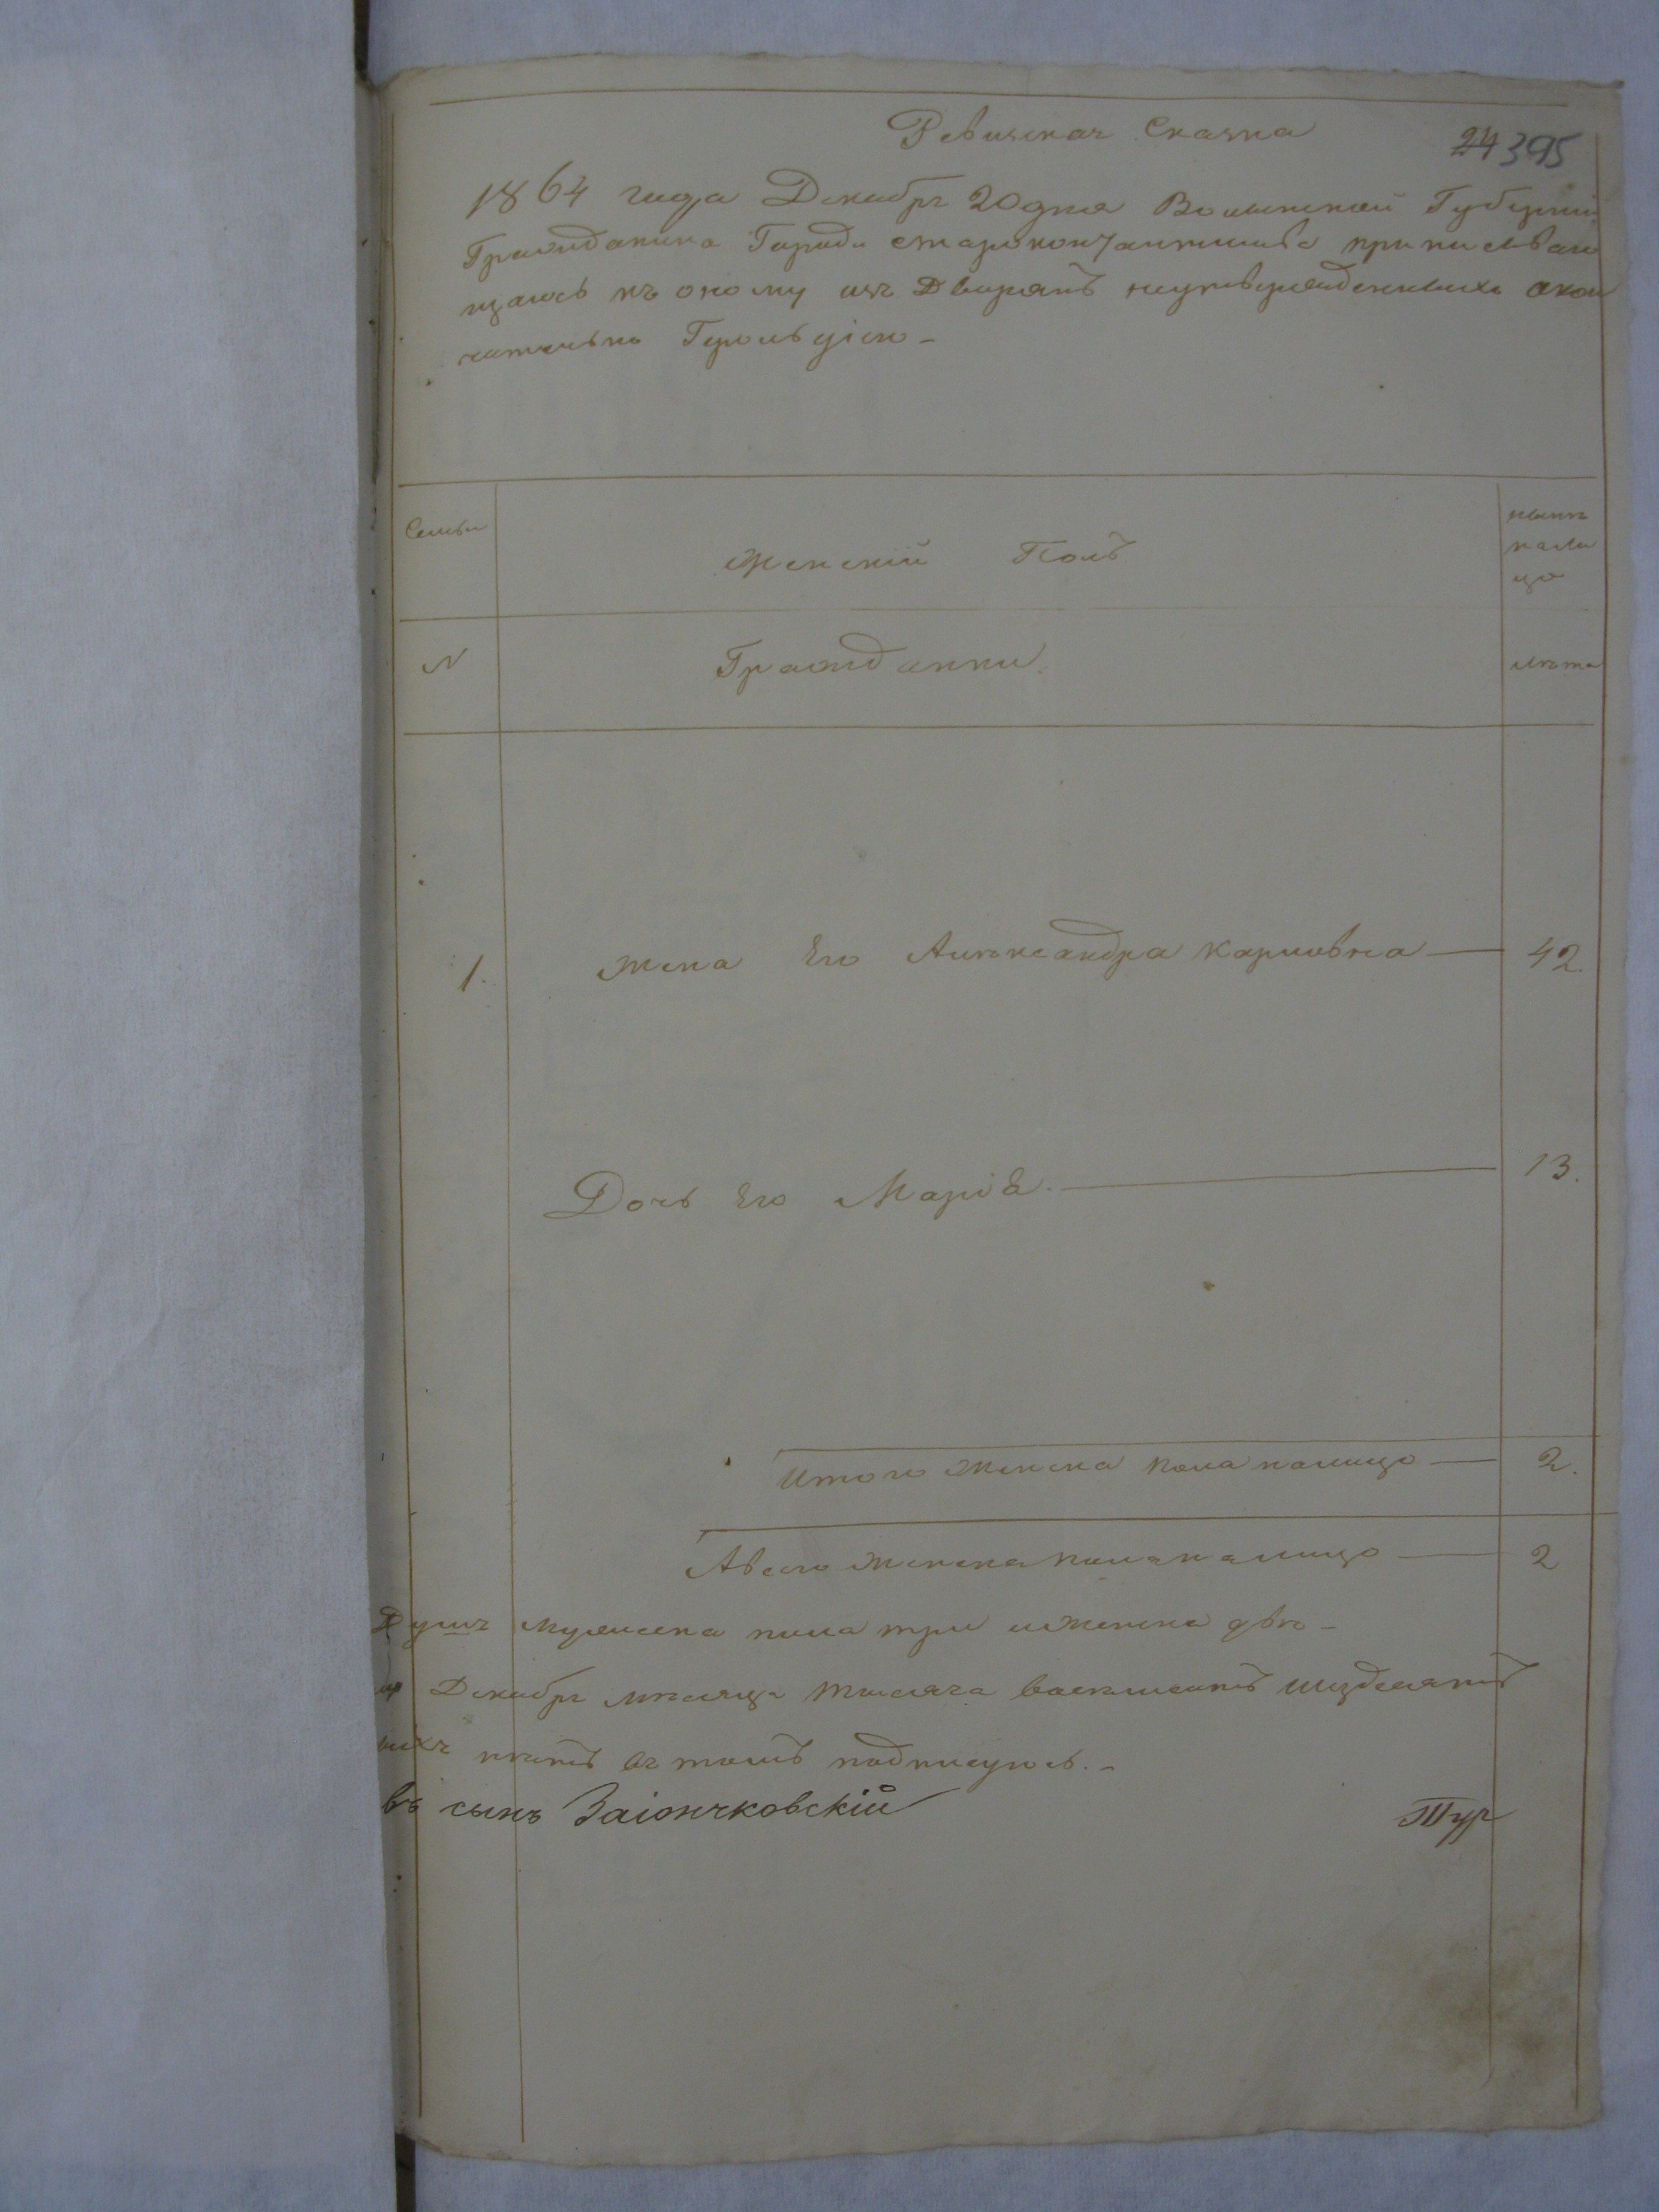 Ревизская Сказка
24 395
1864 года Декабря 20 дня Волынской Губернии
Гражданина Города Староконстантинова приписываю
щаюсь къ оному изъ Дворянъ неутвержденныхъ окон
чательно Герольдіею -
Семьи
Женскій Полъ
нынѣ
на ли
цо
N
Гражданки.
лѣта
1. Жена Его Александра Карповна — 42.
Дочь Его Марія. — 13.
Итого женска пола налицо — 2.
А всего женска пола налицо — 2
Душъ мужеска пола три и женска двѣ -
Декабря мѣсяца тысяча восемьсотъ шиздесятъ
въ томъ подписуюсь. -
въ сынъ Заіончковскій
Тур